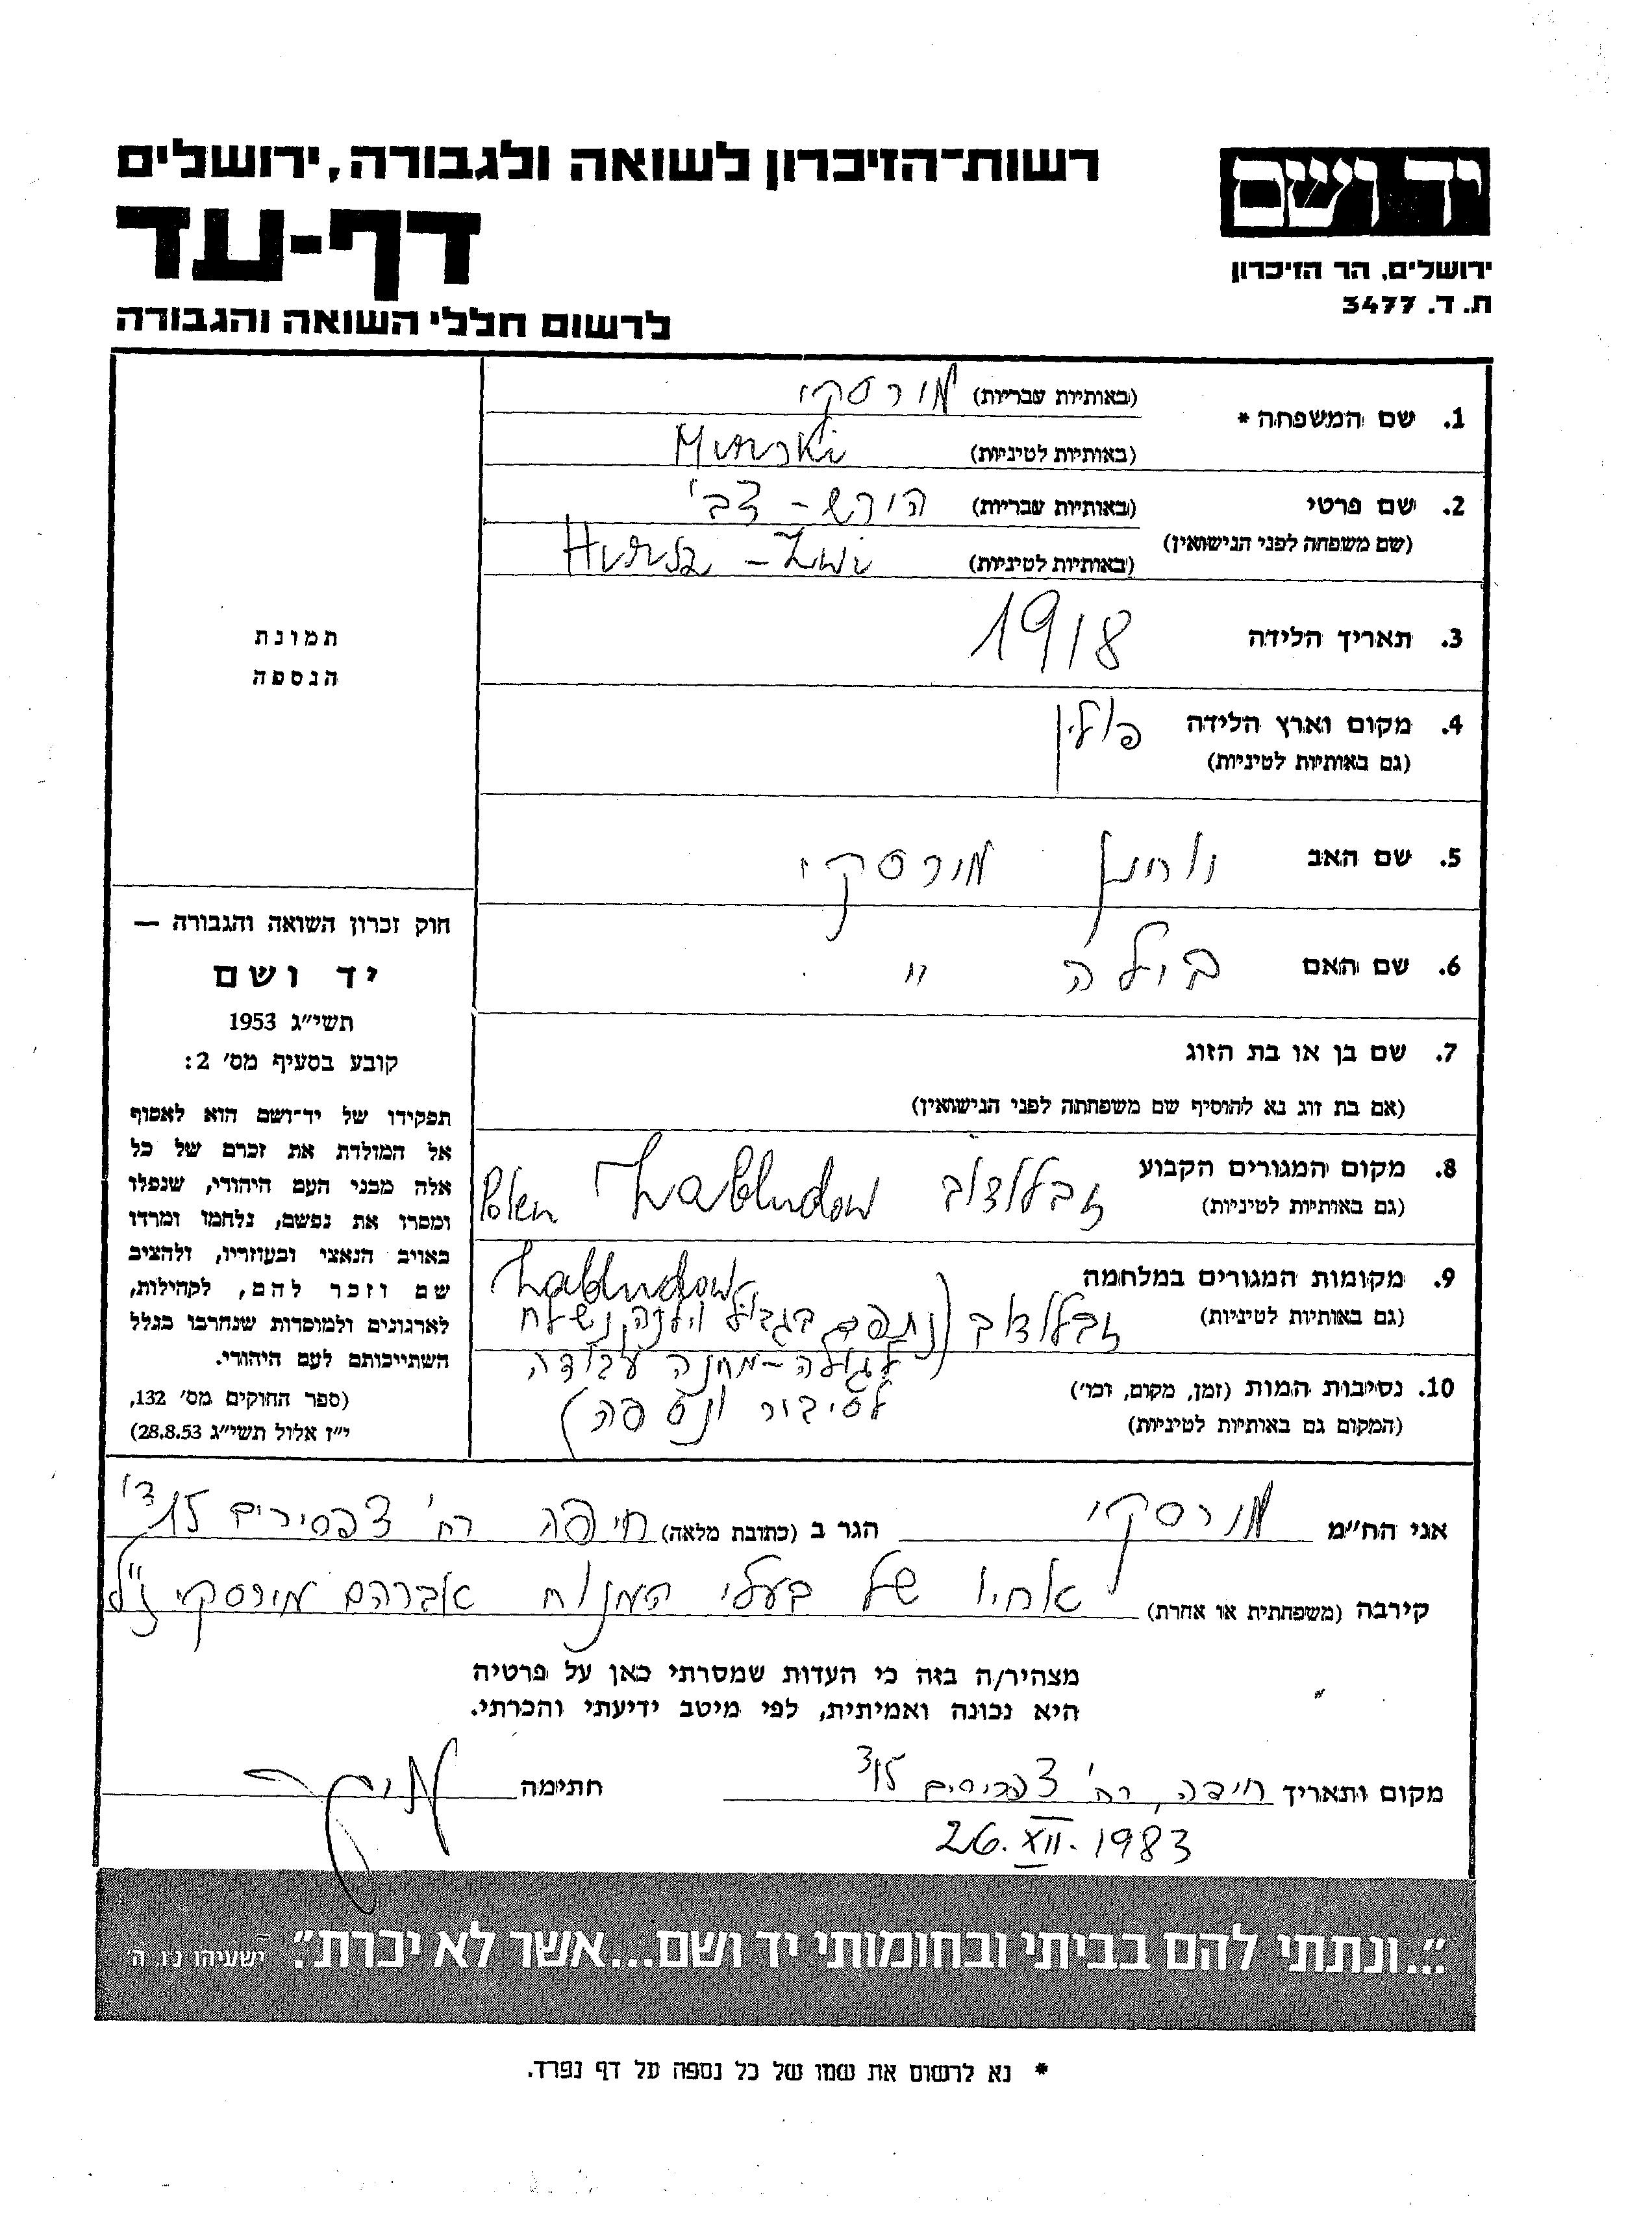 רשות־הזיכרון לשואה ולגבורה, ירושלים
דף-עד
לרשום חללי השואה והגבורה
יד ושם
ירושלים, הר הזיכרון
ת. ד. 3477
1. שם המשפחה *
(באותיות עבריות) מורסקי
(באותיות לטיניות) Murski
2. שם פרטי
(שם משפחה לפני הנישואין)
(באותיות עבריות) הירש - צבי
(באותיות לטיניות) Hirsz - Zwi
3. תאריך הלידה 1918
4. מקום וארץ הלידה פולין
(גם באותיות לטיניות)
5. שם האב מורסקי
6. שם האם ביילה "
7. שם בן או בת הזוג
(אם בת זוג נא להוסיף שם משפחתה לפני הנישואין)
8. מקום המגורים הקבוע זבלודוב Zabludow Polen
(גם באותיות לטיניות)
9. מקומות המגורים במלחמה Zabludow
(גם באותיות לטיניות) זבלודוב (נתפס בגבול וילנה, נשלח
לגולה - מחנה עבודה
לסיבור ונספה)
10. נסיבות המות (זמן, מקום, וכו')
(המקום גם באותיות לטיניות)
תמונת
הנספה
חוק זכרון השואה והגבורה —
יד ושם
תשי"ג 1953
קובע בסעיף מס' 2:
תפקידו של יד־ושם הוא לאסוף
אל המולדת את זכרם של כל
אלה מבני העם היהודי, שנפלו
ומסרו את נפשם, נלחמו ומרדו
באויב הנאצי ובעוזריו, ולהציב
שם וזכר להם, לקהילות,
לארגונים ולמוסדות שנחרבו בגלל
השתייכותם לעם היהודי.
(ספר החוקים מס' 132,
י"ז אלול תשי"ג 28.8.53)
אני הח"מ מורסקי הגר ב (כתובת מלאה) חיפה רח' צפרירים 15
קירבה (משפחתית או אחרת) אחיו של בעלי המנוח אברהם מורסקי ז"ל
מצהיר/ה בזה כי העדות שמסרתי כאן על פרטיה
היא נכונה ואמיתית, לפי מיטב ידיעתי והכרתי.
מקום ותאריך חיפה, רח' צפרירים 15 חתימה
26.XII.1983
"...ונתתי להם בביתי ובחומותי יד ושם...אשר לא יכרת". ישעיהו נו, ה'
* נא לרשום את שמו של כל נספה על דף נפרד.